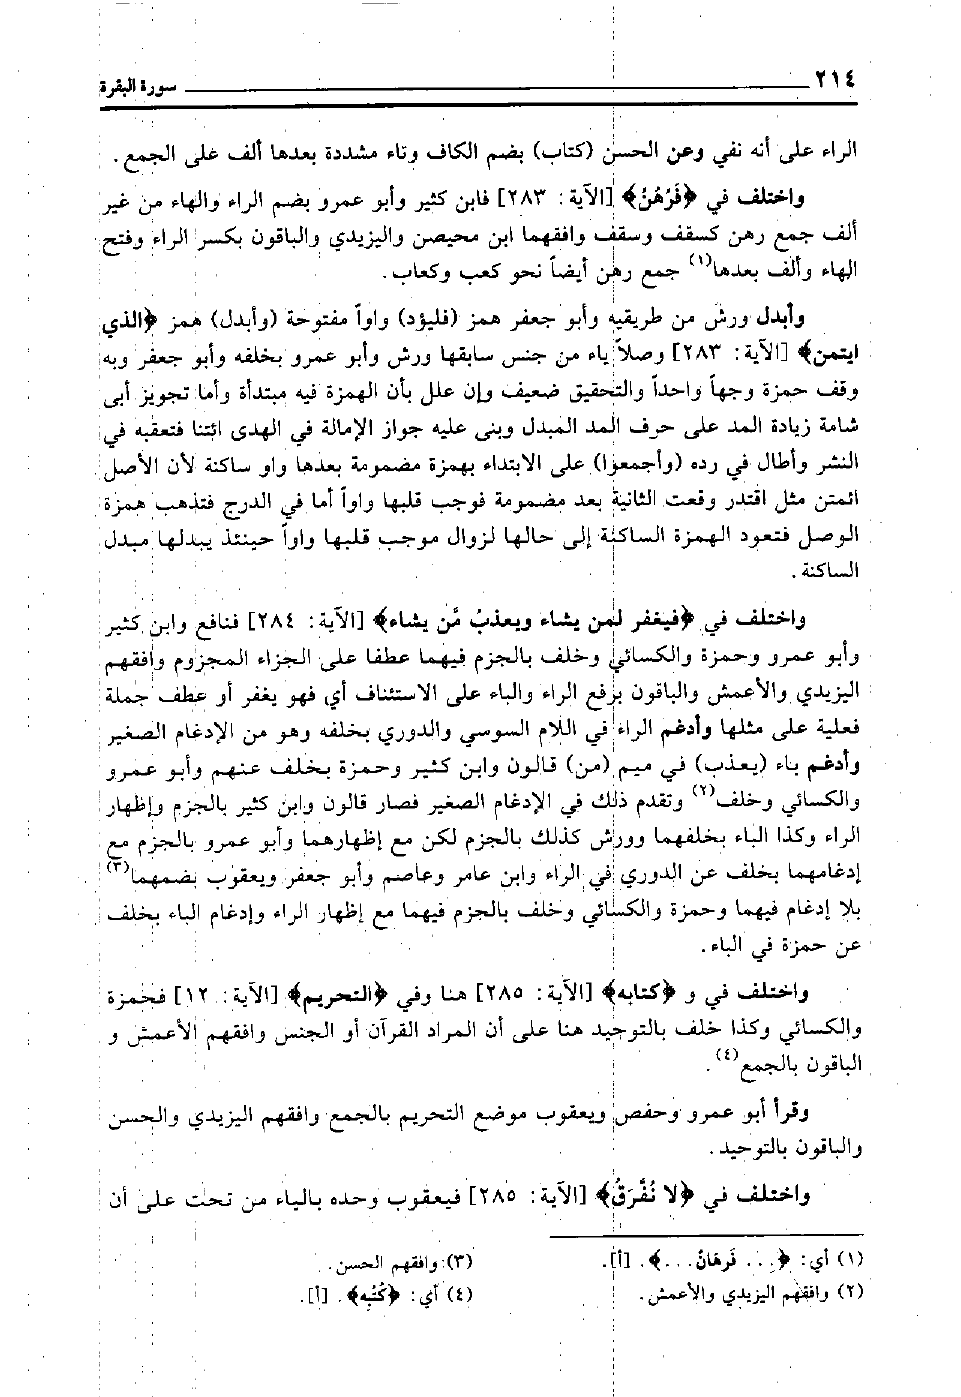 ٢١٤ سورة البقرة
الراء على أنه نفي وعن الحسن (كتاب) بضم الكاف وتاء مشددة بعدها ألف على الجمع.
واختلف في ﴿فَرُهُنٌ﴾ [الآية: ٢٨٣] فابن كثير وأبو عمرو بضم الراء والهاء من غير
ألف جمع رهن كسقف وسقف وافقهما ابن محيصن واليزيدي والباقون بكسر الراء وفتح
الهاء وألف بعدها(١) جمع رهن أيضاً نحو كعب وكعاب.
وأبدل ورش من طريقيه وأبو جعفر همز (فليؤد) واواً مفتوحة (وأبدل) همز ﴿الذي
ايتمن﴾ [الآية: ٢٨٣] وصلاً ياء من جنس سابقها ورش وأبو عمرو بخلفه وأبو جعفر وبه
وقف حمزة وجهاً واحداً والتحقيق ضعيف وإن علل بأن الهمزة فيه مبتدأة وأما تجويز أبى
شامة زيادة المد على حرف المد المبدل وبنى عليه جواز الإمالة في الهدى ائتنا فتعقبه في
النشر وأطال في رده (وأجمعوا) على الابتداء بهمزة مضمومة بعدها واو ساكنة لأن الأصل
ائمتن مثل اقتدر وقعت الثانية بعد مضمومة فوجب قلبها واواً أما في الدرج فتذهب همزة
الوصل فتعود الهمزة الساكنة إلى حالها لزوال موجب قلبها واواً حينئذ يبدلها مبدل
الساكنة.
واختلف في ﴿فيغفر لمن يشاء ويعذبُ مَّن يشاء﴾ [الآية: ٢٨٤] فنافع وابن كثير
وأبو عمرو وحمزة والكسائي وخلف بالجزم فيهما عطفا على الجزاء المجزوم وافقهم
اليزيدي والأعمش والباقون برفع الراء والباء على الاستئناف أي فهو يغفر أو عطف جملة
فعلية على مثلها وأدغم الراء في اللام السوسي والدوري بخلفه وهو من الإدغام الصغير
وأدغم باء (يعذب) في ميم (من) قالون وابن كثير وحمزة بخلف عنهم وأبو عمرو
والكسائي وخلف(٢) وتقدم ذلك في الإدغام الصغير فصار قالون وابن كثير بالجزم وإظهار
الراء وكذا الباء بخلفهما وورش كذلك بالجزم لكن مع إظهارهما وأبو عمرو بالجزم مع
إدغامهما بخلف عن الدوري في الراء وابن عامر وعاصم وأبو جعفر ويعقوب بضمهما(٣)
بلا إدغام فيهما وحمزة والكسائي وخلف بالجزم فيهما مع إظهار الراء وإدغام الباء بخلف
عن حمزة في الباء.
واختلف في و ﴿كتابه﴾ [الآية: ٢٨٥] هنا وفي ﴿التحريم﴾ [الآية: ١٢] فحمزة
والكسائي وكذا خلف بالتوحيد هنا على أن المراد القرآن أو الجنس وافقهم الأعمش و
الباقون بالجمع(٤).
وقرأ أبو عمرو وحفص ويعقوب موضع التحريم بالجمع وافقهم اليزيدي والحسن
والباقون بالتوحيد.
واختلف في ﴿لا نُفَّرَقُ﴾ [الآية: ٢٨٥] فيعقوب وحده بالياء من تحت على أن
(١) أي: ﴿... فَرِهَانٌ...﴾. [أ].
(٢) وافقهم اليزيدي والأعمش.
(٣) وافقهم الحسن.
(٤) أي: ﴿كُتُبِه﴾. [أ].